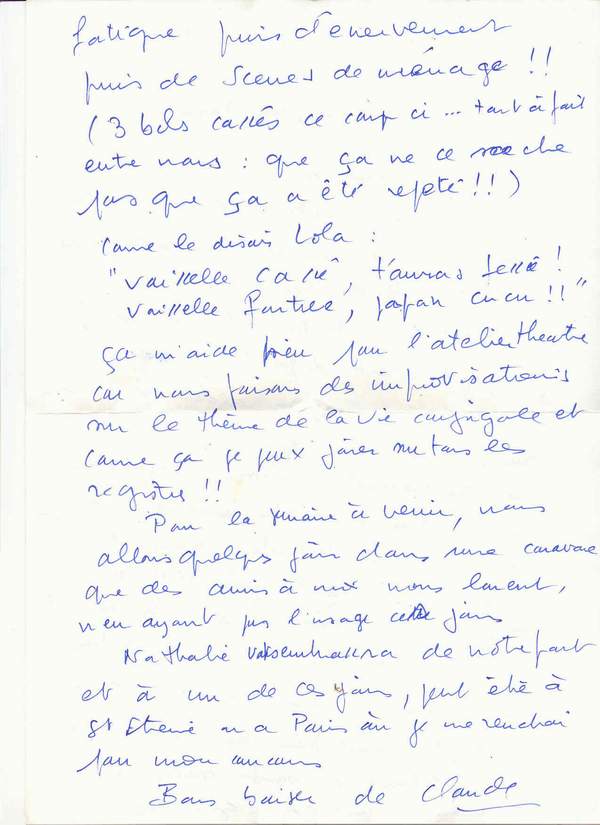 fatigue puis d'énervement
puis de scènes de ménage !!
(3 bols cassés ce coup ci ... tout à fait
entre nous : que ça ne ce sache
pas que ça a été répété !!)
comme le disais Lola :
"Vaisselle cassé, t'auras
Vaisselle , cucu !!"
ça m'aide bien pour l'atelier théatre
car nous faisons des improvisations
sur le thème de la vie conjugale et
comme ça je peux jouer sur tous les
registres !!
Pour la semaine à venir, nous
allons quelques jours dans une caravane
que des amis à nous louent,
n'en ayant pas l'usage ces jours
Nathalie de notre part
et à un de ces jours, peut être à
St Etienne ou a Paris où je me rendrai
pour mon concours
Bons baisers de Claude